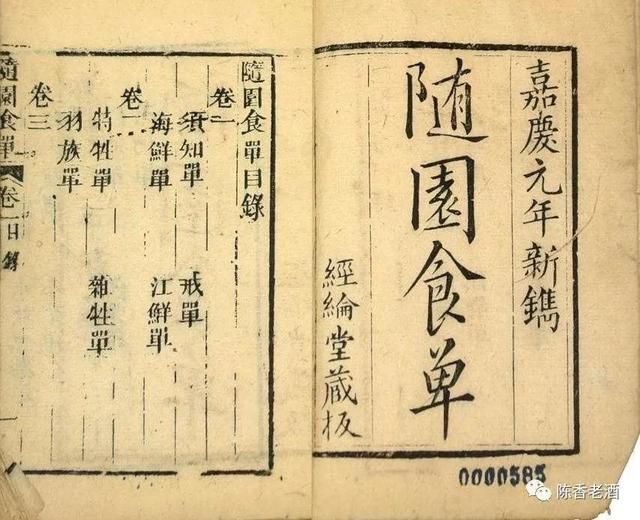 嘉慶元年新鐫
随園食单
經綸堂藏板
0000585
隨園食單目錄
卷一
須知單 戒單
海鮮單 江鮮單
卷二
特牲單 雜牲單
羽族單
卷三
隨園食單 卷一目錄 一
陈香老酒